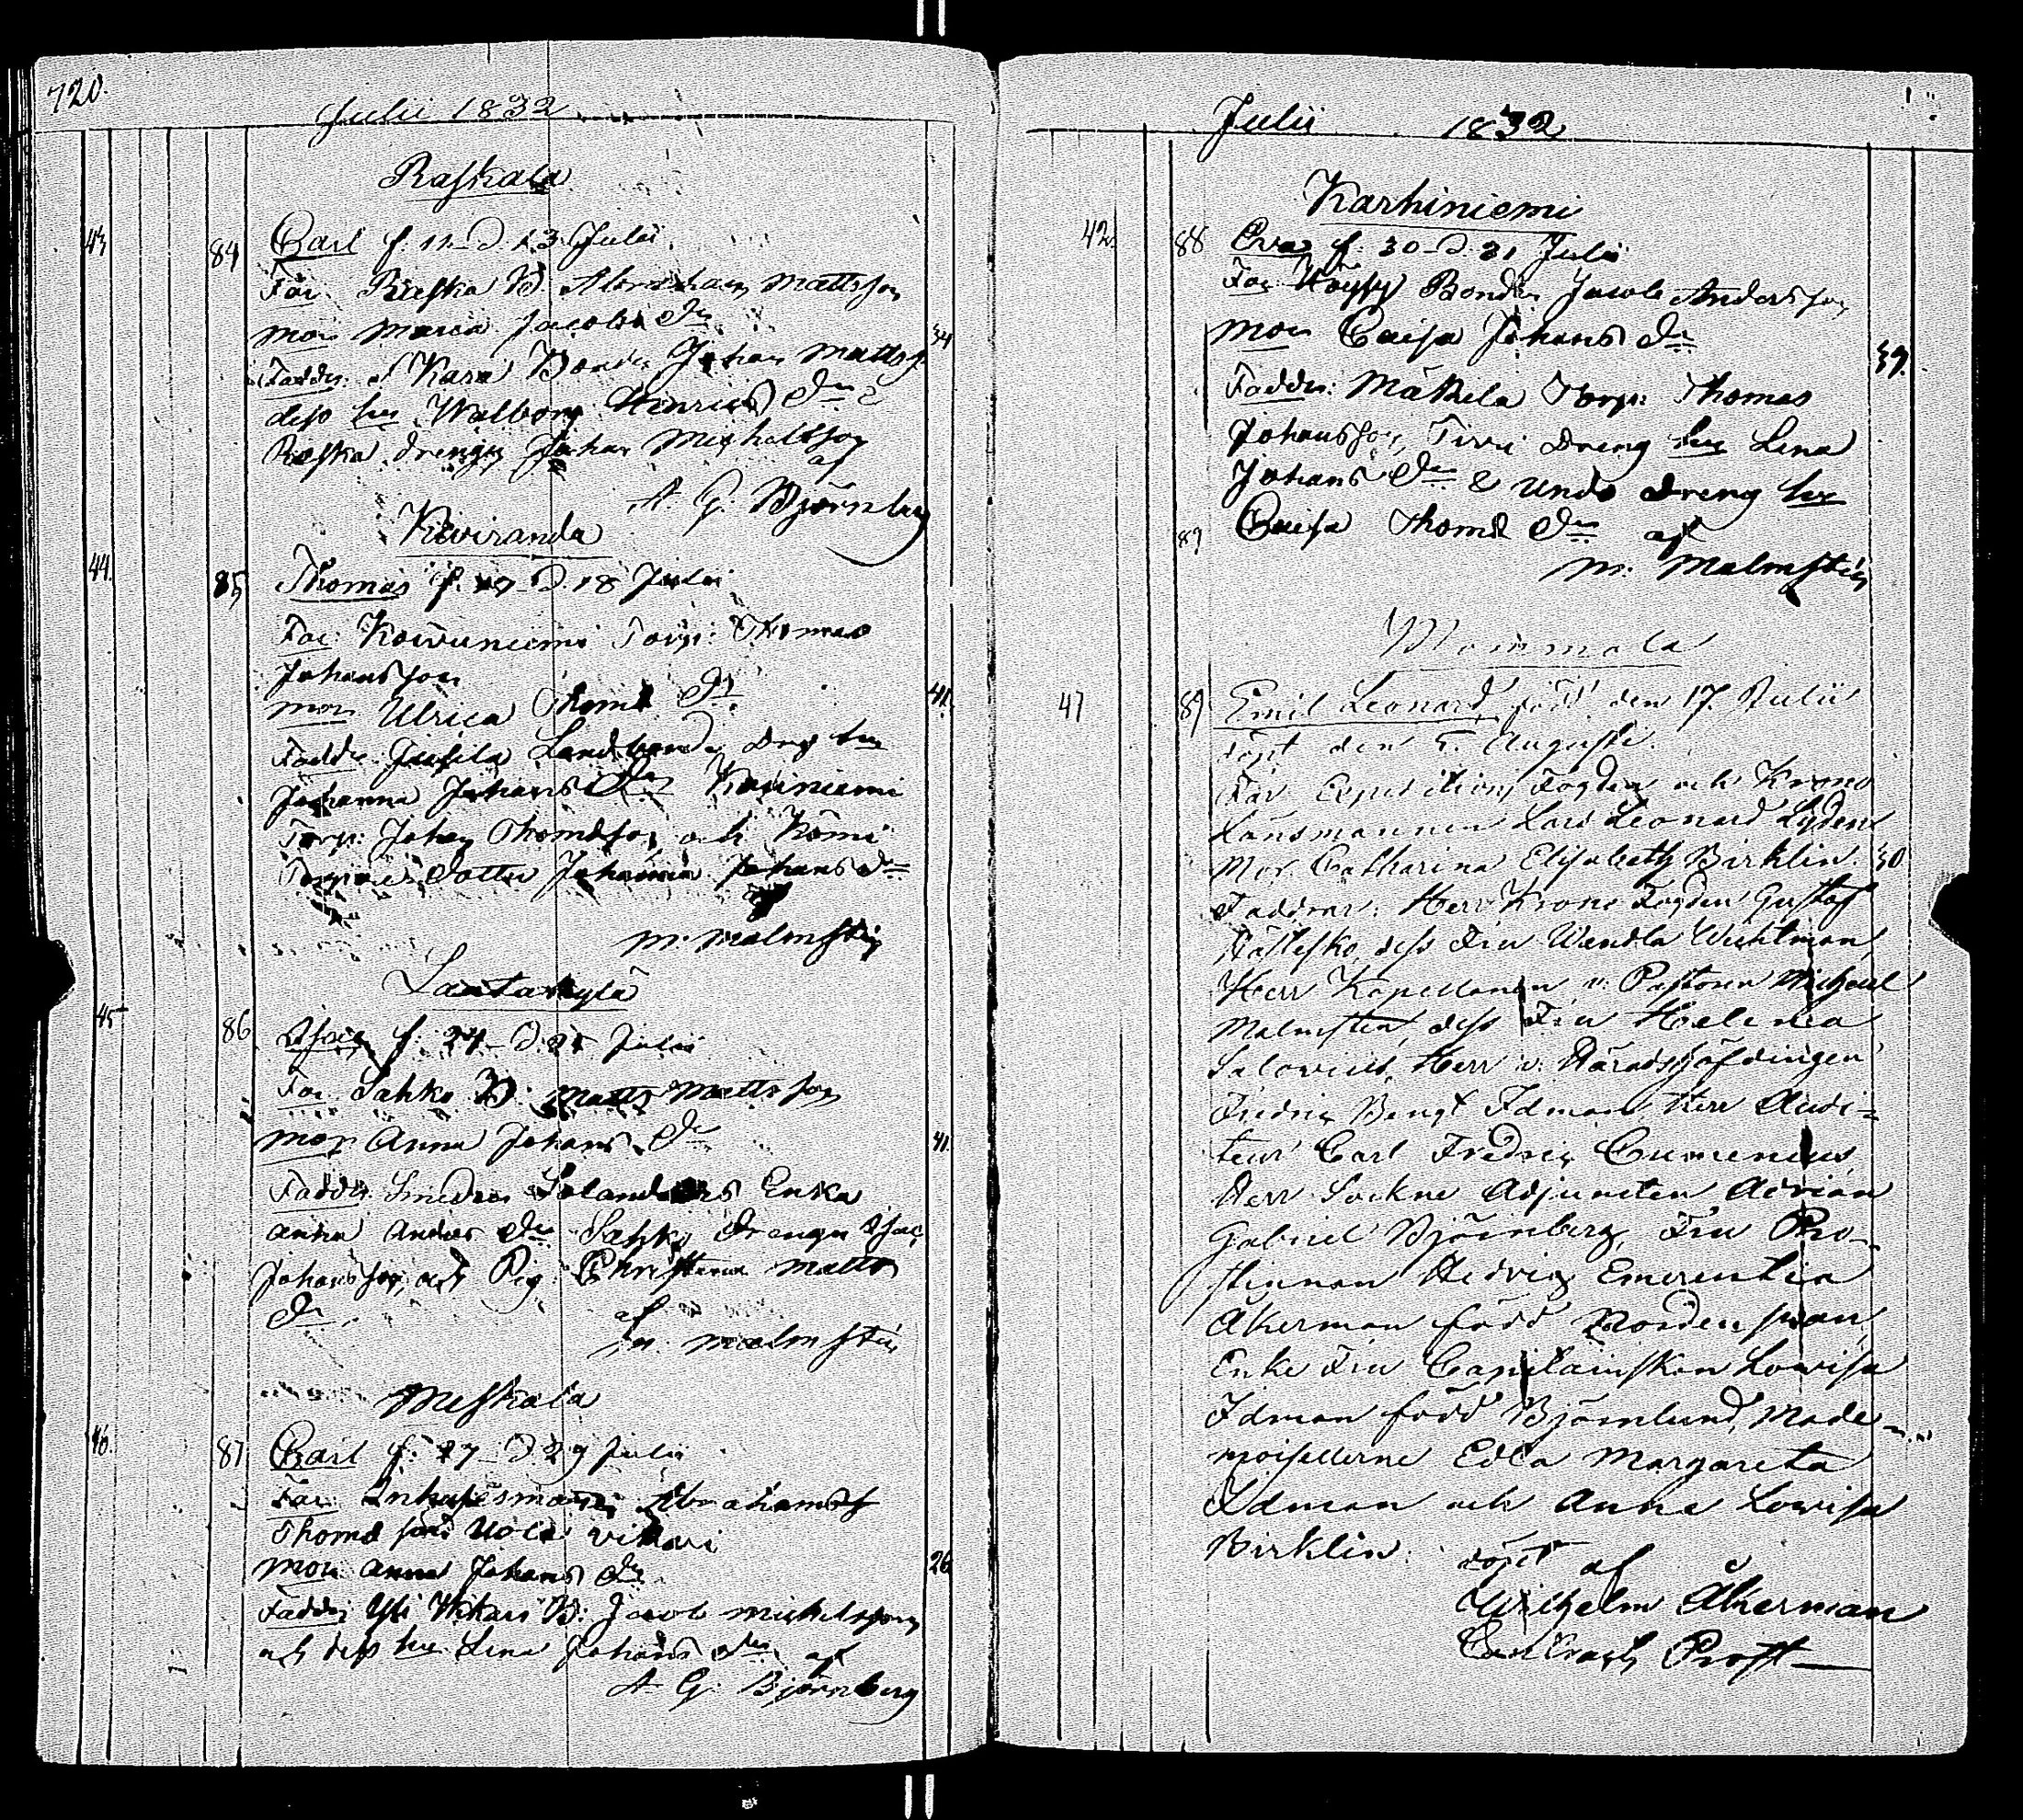 720.
Julii 1832
Raskala
43 84 Carl f. 11 D. 13 Julii
Far: Rieska B. Abraham Mattsson
Mor Maria Jacobs Dr
34
Faddr: Kara Bonde Johan Matts s.
dess hu Walborg Henrics Dr &
Rieska drengen Johan Michaelsson
af
A. G. Björnberg
Kiviranda
44. 85 Thomas f. 17 D. 18 Julii
Far: Koivuniemi Torp: Thomas
Johansson
Mor Ulrica Thomæ Dr
41.
Faddr: Landbonde
Johanna Johans Dr
Torp: Johan Thomasson, och
dotter Johanna Johans Dr
af
M. Malmstén
Sautankylä
45 86 f. 24 D. 25 Julii
Far Sahko B: Matts Mattsson
Mor Anna Johans Dr
41.
Faddr Smeden Enka
Anna Anders Dr Sahko Drengen Isac
Johansson, och Pig: Christina Matts
Dr
af
M. Malmstén
Meskala
46. 87 Carl f: 27 D. 29 Julii
Far: Inhysesmannen Abraham
Thomæ son
Mor: Anna Johans Dr
26
Faddr: Yli Wikari B: Jacob Michelsson
och dess hu Lena Johans Dr af
A. G. Björnberg
Julii 1832
Karhiniemi
42. 88 Eva f. 30 D. 31 Julii
Far Bonden Jacob Andersson
Mor Caisa Johans Dr
39.
Faddr: Mäkkela Torp: Thomas
Johansson, Tirri Dreng hu Lena
Johans Dr & Undo Dreng hu
89 Caisa Thomæ Dr af
M. Malmstén
Mommola
47 89 Emil Leonard, född den 17. Julii
döpt den 5. Augusti.
Far Expeditions Fogden och Krono
Länsmannen Lars Leonard Lydén
Mor. Catharina Elisabeth Birklin. 30
Faddrar: Herr Krono Fogden Gustaf
Hällfsko, dess Fru Wendla Wichtman,
Herr Kapellanen v. Pastorn Michael
Malmstén, dess Fru Helena
Salovius, Herr v. Häradshöfdingen
Fredric Bengt Idman Herr Audi-
teur Carl Fredric Cumenius,
Herr Sockne Adjuncten Adrian
Gabriel Björnberg, Fru Pro-
stinnan Hedvig Emerentia
Åkerman född Nordensvan,
Enke Fru Capitainskan Lovisa
Idman född Björnlund, Made-
moisellerne Edla Margareta
Idman och Anna Lovisa
Birklin. döpt af
Wilhelm Åkerman
Prost